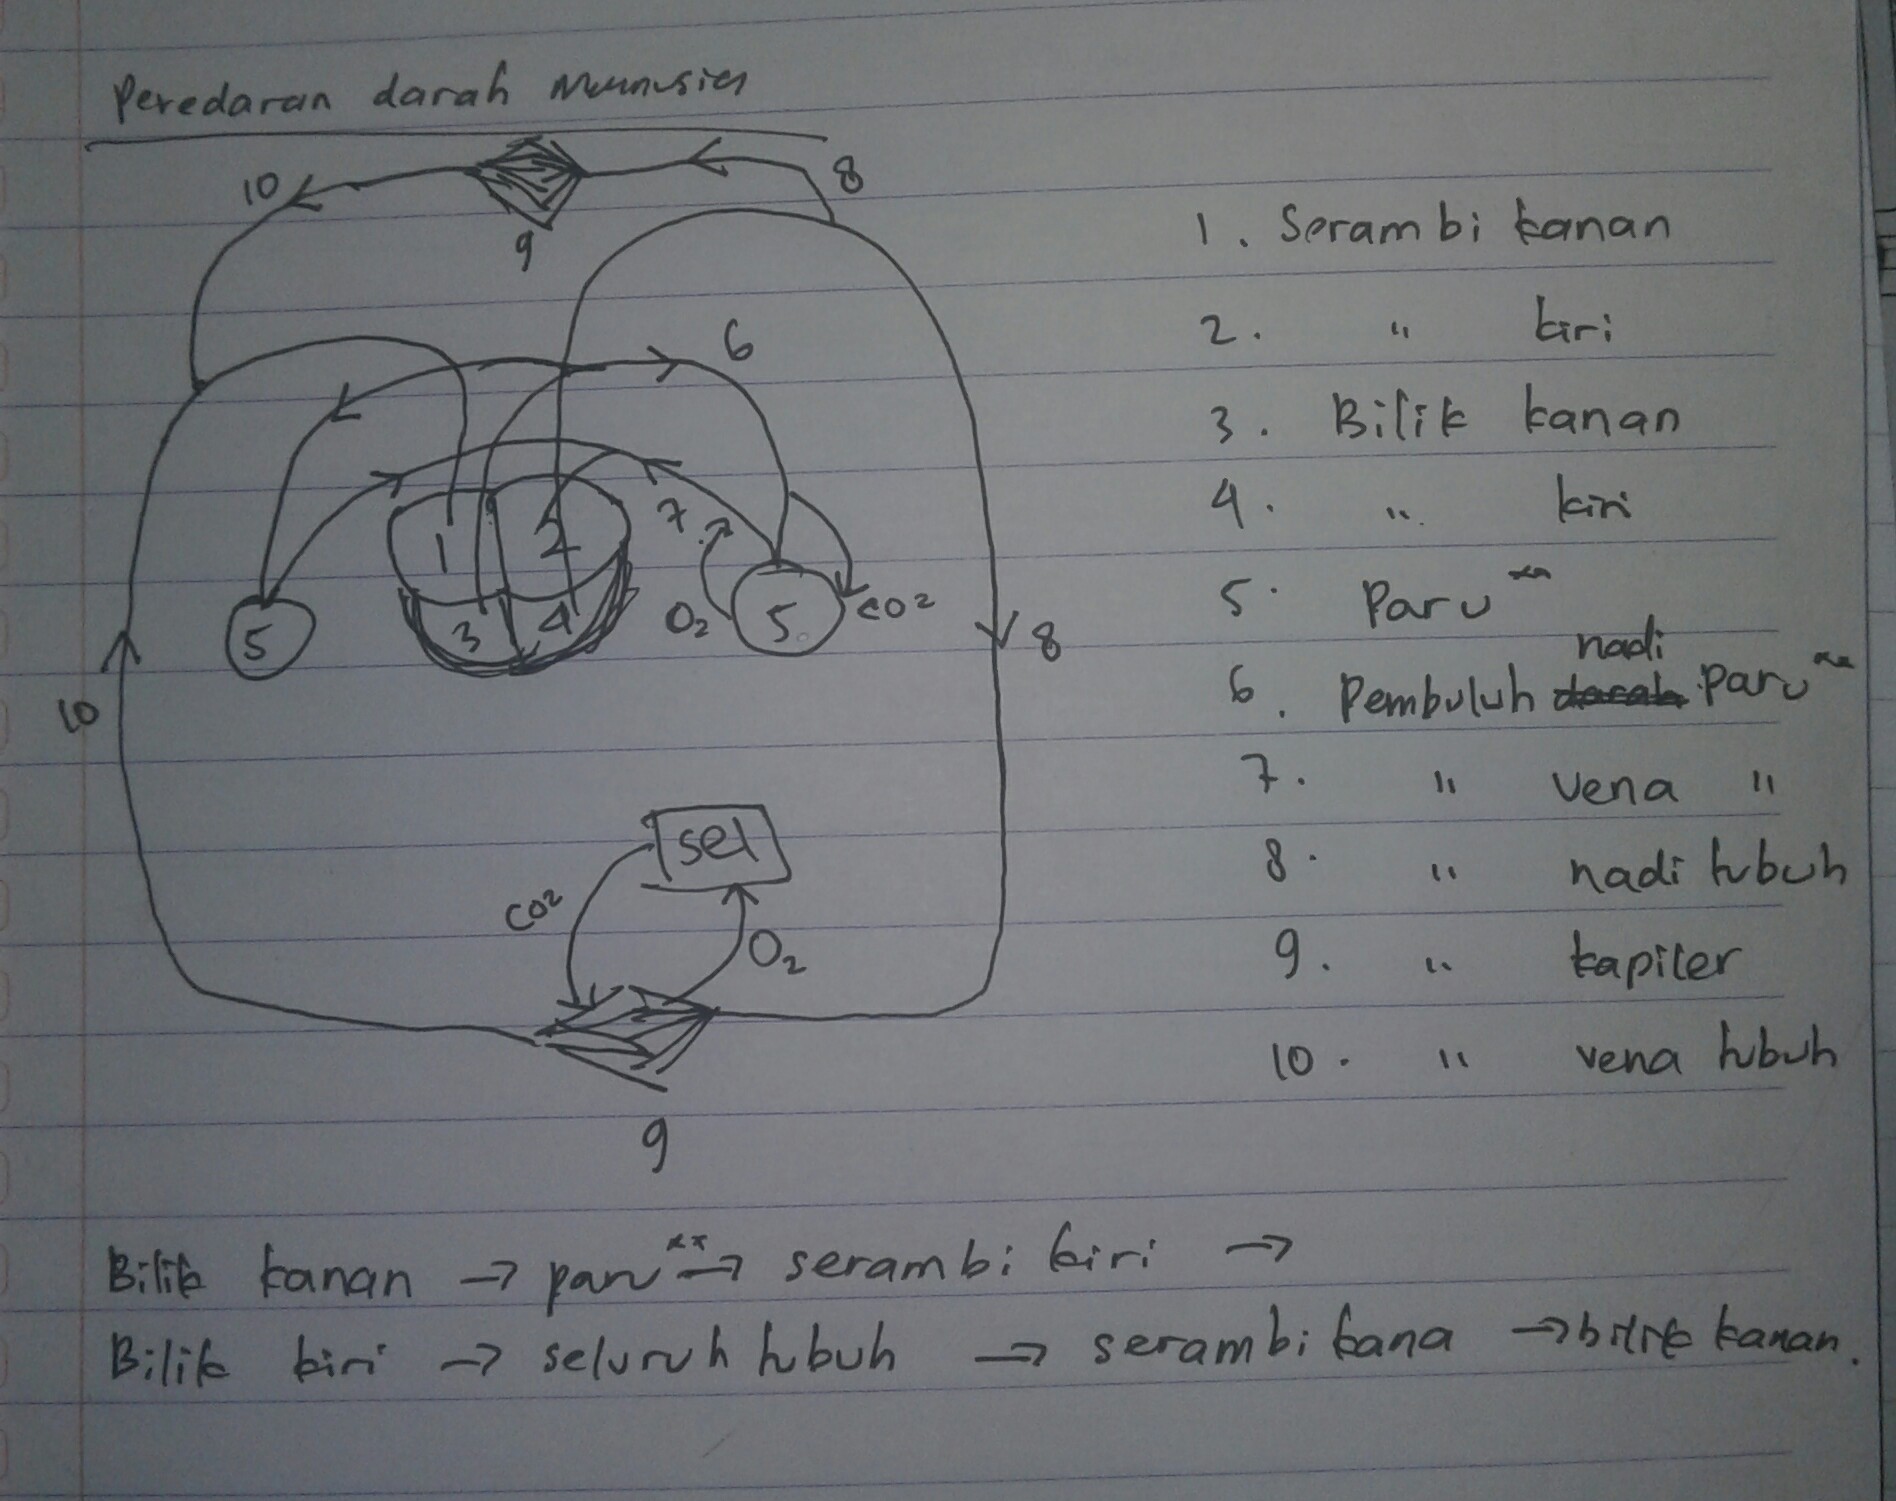 Peredaran darah Manusia
10
8
9
6
7
1
2
3
4
5
O2
5
CO2
8
10
sel
CO2
O2
9
1. Serambi kanan
2. " kiri
3. Bilik kanan
4. " kiri
5. Paru
nadi
6. Pembuluh darah paru
7. " vena "
8. " nadi tubuh
9. " kapiler
10. " vena tubuh
Bilik kanan → paru → serambi kiri →
Bilik kiri → seluruh tubuh → serambi kana → bilik kanan.